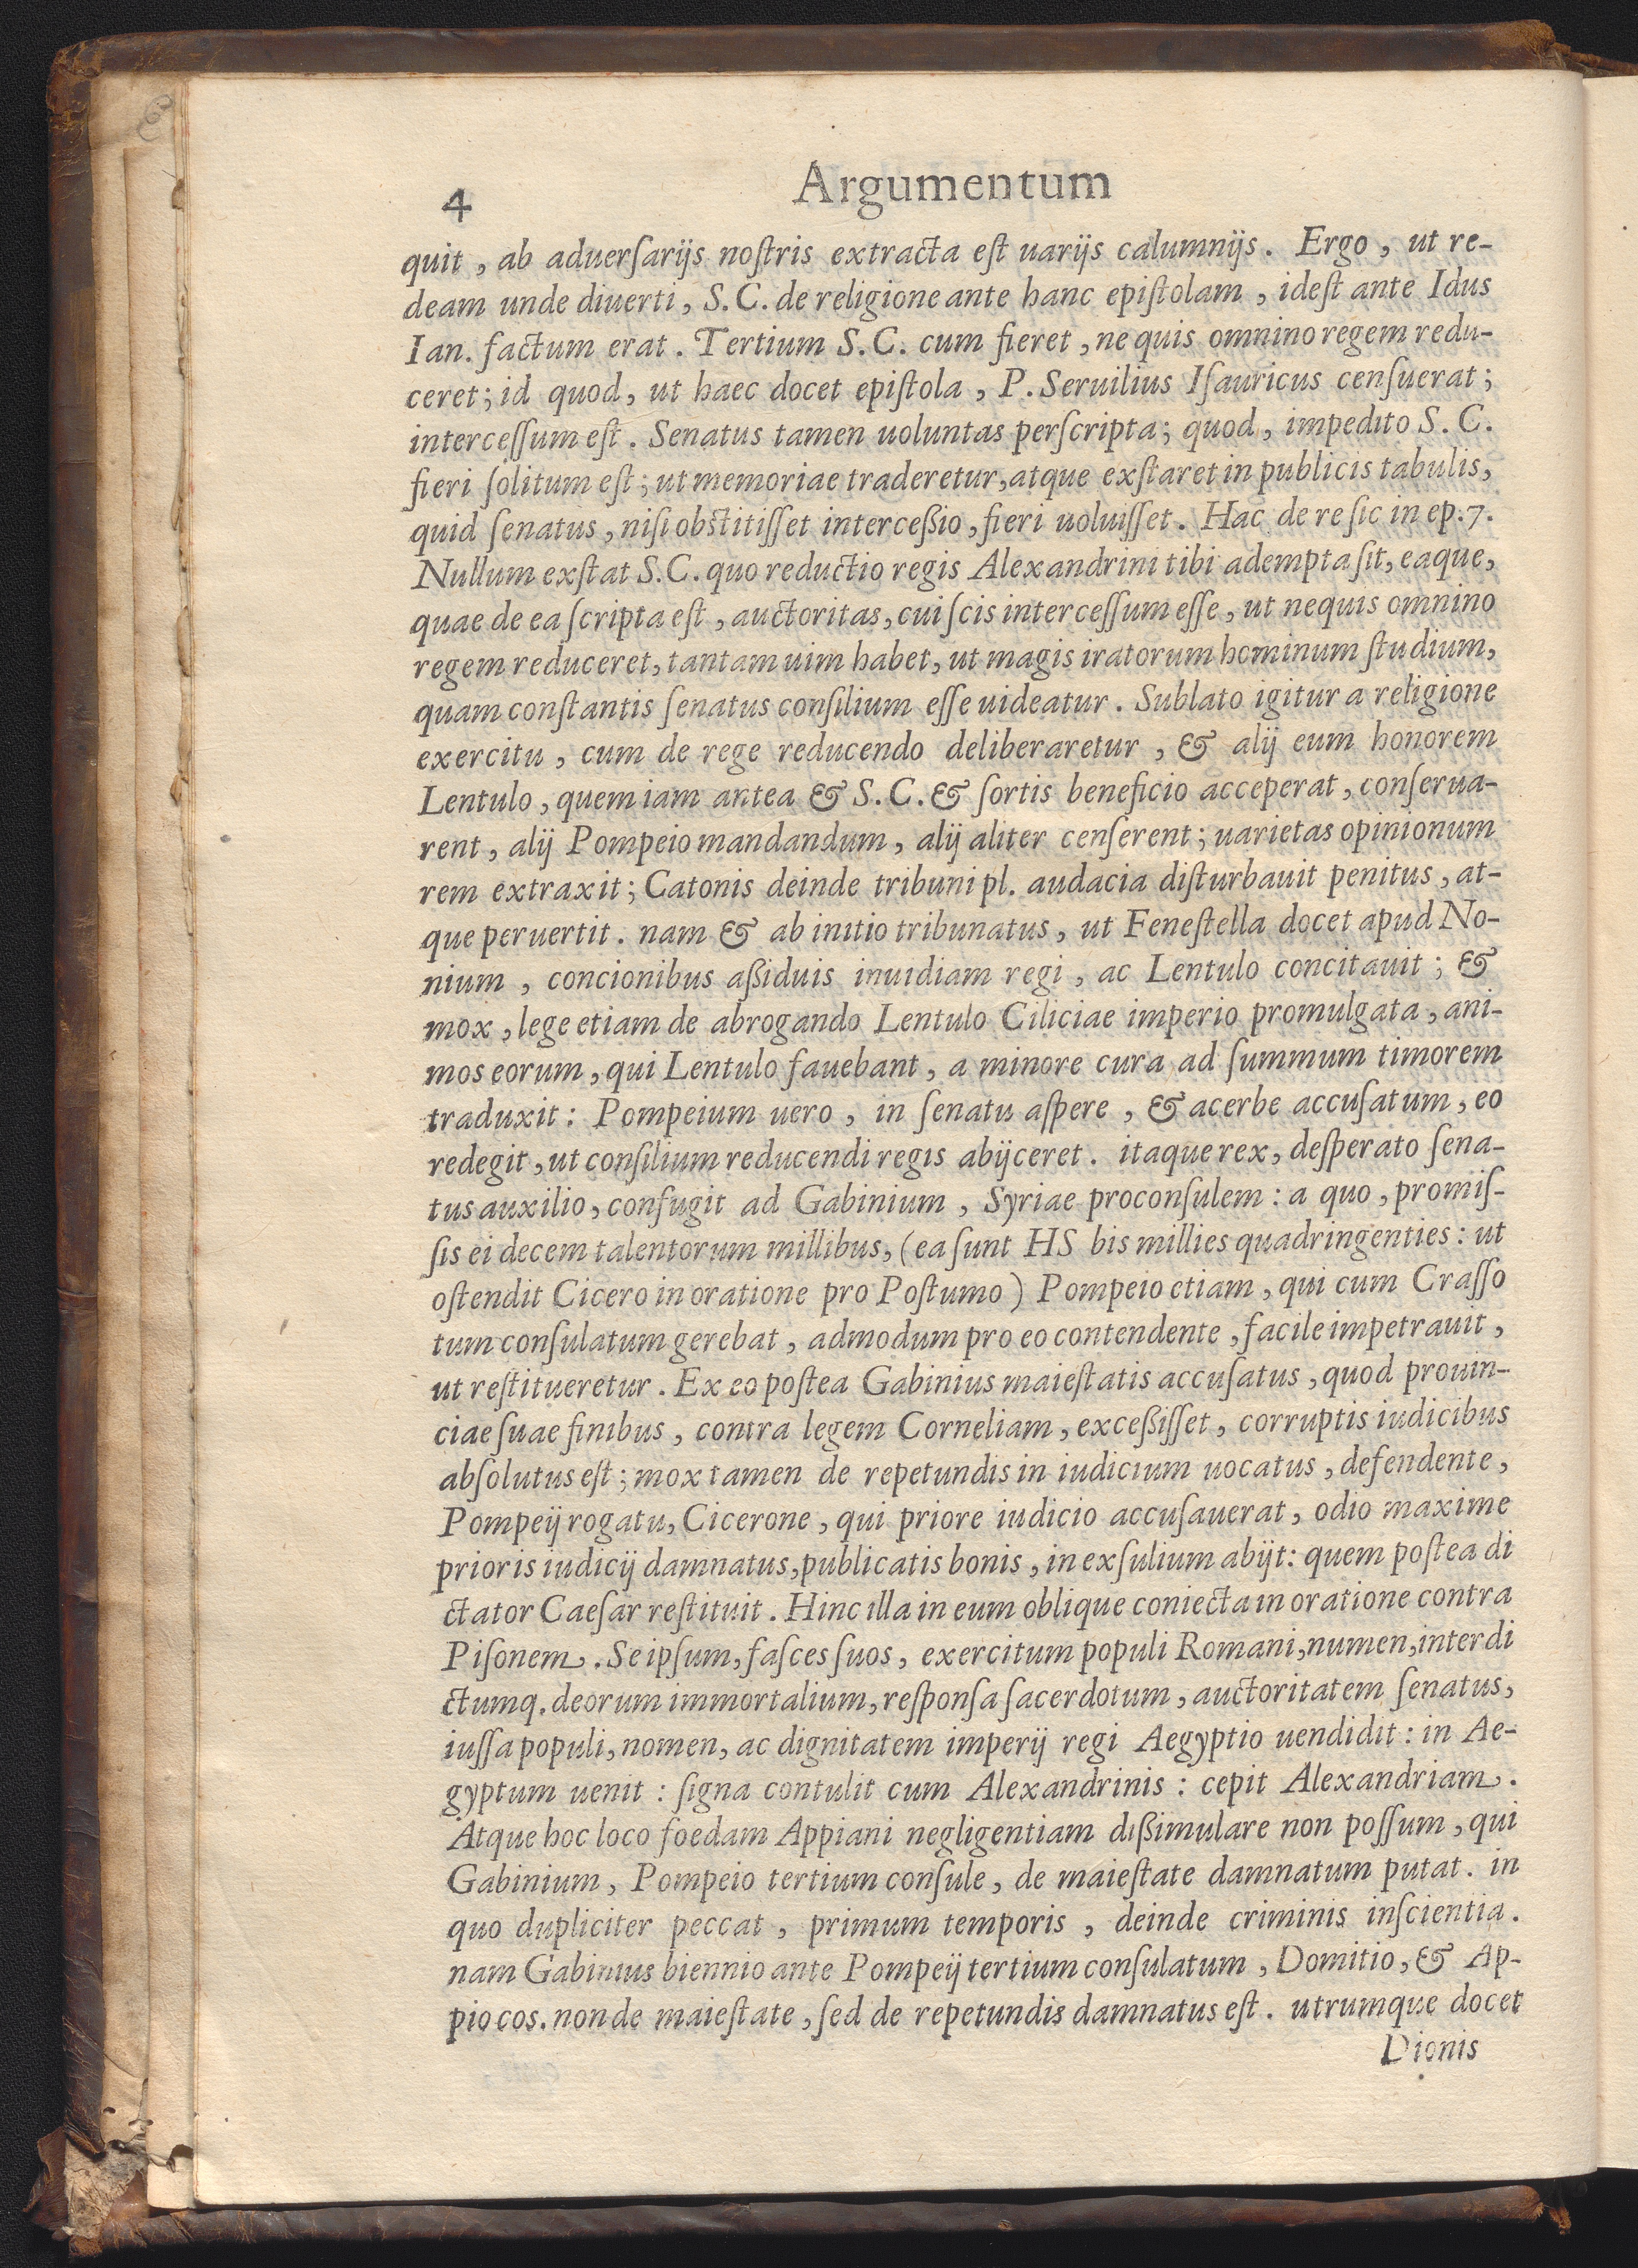 4
Argumentum
quit, ab aduerſarijs noſtris extracta eſt uarijs calumnijs. Ergo, ut re-
deam unde diuerti, S.C. de religione ante hanc epiſtolam, ideſt ante Idus
Ian. factum erat. Tertium S.C. cum fieret, ne quis omnino regem redu-
ceret; id quod, ut haec docet epiſtola, P. Seruilius Iſauricus cenſuerat;
interceſſum eſt. Senatus tamen uoluntas perſcripta; quod, impedito S.C.
fieri ſolitum eſt; ut memoriae traderetur, atque exſtaret in publicis tabulis,
quid ſenatus, niſi obſtitiſſet interceßio, fieri uoluiſſet. Hac de re ſic in ep.7.
Nullum exſtat S.C. quo reductio regis Alexandrini tibi adempta ſit, eaque,
quae de ea ſcripta eſt, auctoritas, cui ſcis interceſſum eſſe, ut nequis omnino
regem reduceret, tantam uim habet, ut magis iratorum hominum ſtudium,
quam conſtantis ſenatus conſilium eſſe uideatur. Sublato igitur a religione
exercitu, cum de rege reducendo deliberaretur, & alij eum honorem
Lentulo, quem iam antea & S.C. & ſortis beneficio acceperat, conſerua-
rent, alij Pompeio mandandum, alij aliter cenſerent; uarietas opinionum
rem extraxit; Catonis deinde tribuni pl. audacia diſturbauit penitus, at-
que peruertit. nam & ab initio tribunatus, ut Feneſtella docet apud No-
nium, concionibus aßiduis inuidiam regi, ac Lentulo concitauit; &
mox, lege etiam de abrogando Lentulo Ciliciae imperio promulgata, ani-
mos eorum, qui Lentulo fauebant, a minore cura ad ſummum timorem
traduxit: Pompeium uero, in ſenatu aſpere, & acerbe accuſatum, eo
redegit, ut conſilium reducendi regis abijceret. itaque rex, deſperato ſena-
tus auxilio, confugit ad Gabinium, Syriae proconſulem: a quo, promiſ-
ſis ei decem talentorum millibus, (ea ſunt HS bis millies quadringenties: ut
oſtendit Cicero in oratione pro Poſtumo) Pompeio etiam, qui cum Craſſo
tum conſulatum gerebat, admodum pro eo contendente, facile impetrauit,
ut reſtitueretur. Ex eo poſtea Gabinius maieſtatis accuſatus, quod prouin-
ciae ſuae finibus, contra legem Corneliam, exceßiſſet, corruptis iudicibus
abſolutus eſt; mox tamen de repetundis in iudicium uocatus, defendente,
Pompeij rogatu, Cicerone, qui priore iudicio accuſauerat, odio maxime
prioris iudicij damnatus, publicatis bonis, in exſulium abijt: quem poſtea di
ctator Caeſar reſtituit. Hinc illa in eum oblique coniecta in oratione contra
Piſonem. Se ipſum, faſces ſuos, exercitum populi Romani, numen, interdi
ctumq. deorum immortalium, reſponſa ſacerdotum, auctoritatem ſenatus,
iuſſa populi, nomen, ac dignitatem imperij regi Aegyptio uendidit: in Ae-
gyptum uenit: ſigna contulit cum Alexandrinis: cepit Alexandriam.
Atque hoc loco foedam Appiani negligentiam dißimulare non poſſum, qui
Gabinium, Pompeio tertium conſule, de maieſtate damnatum putat. in
quo dupliciter peccat, primum temporis, deinde criminis inſcientia.
nam Gabinius biennio ante Pompeij tertium conſulatum, Domitio, & Ap-
pio cos. non de maieſtate, ſed de repetundis damnatus eſt. utrumque docet
Dionis